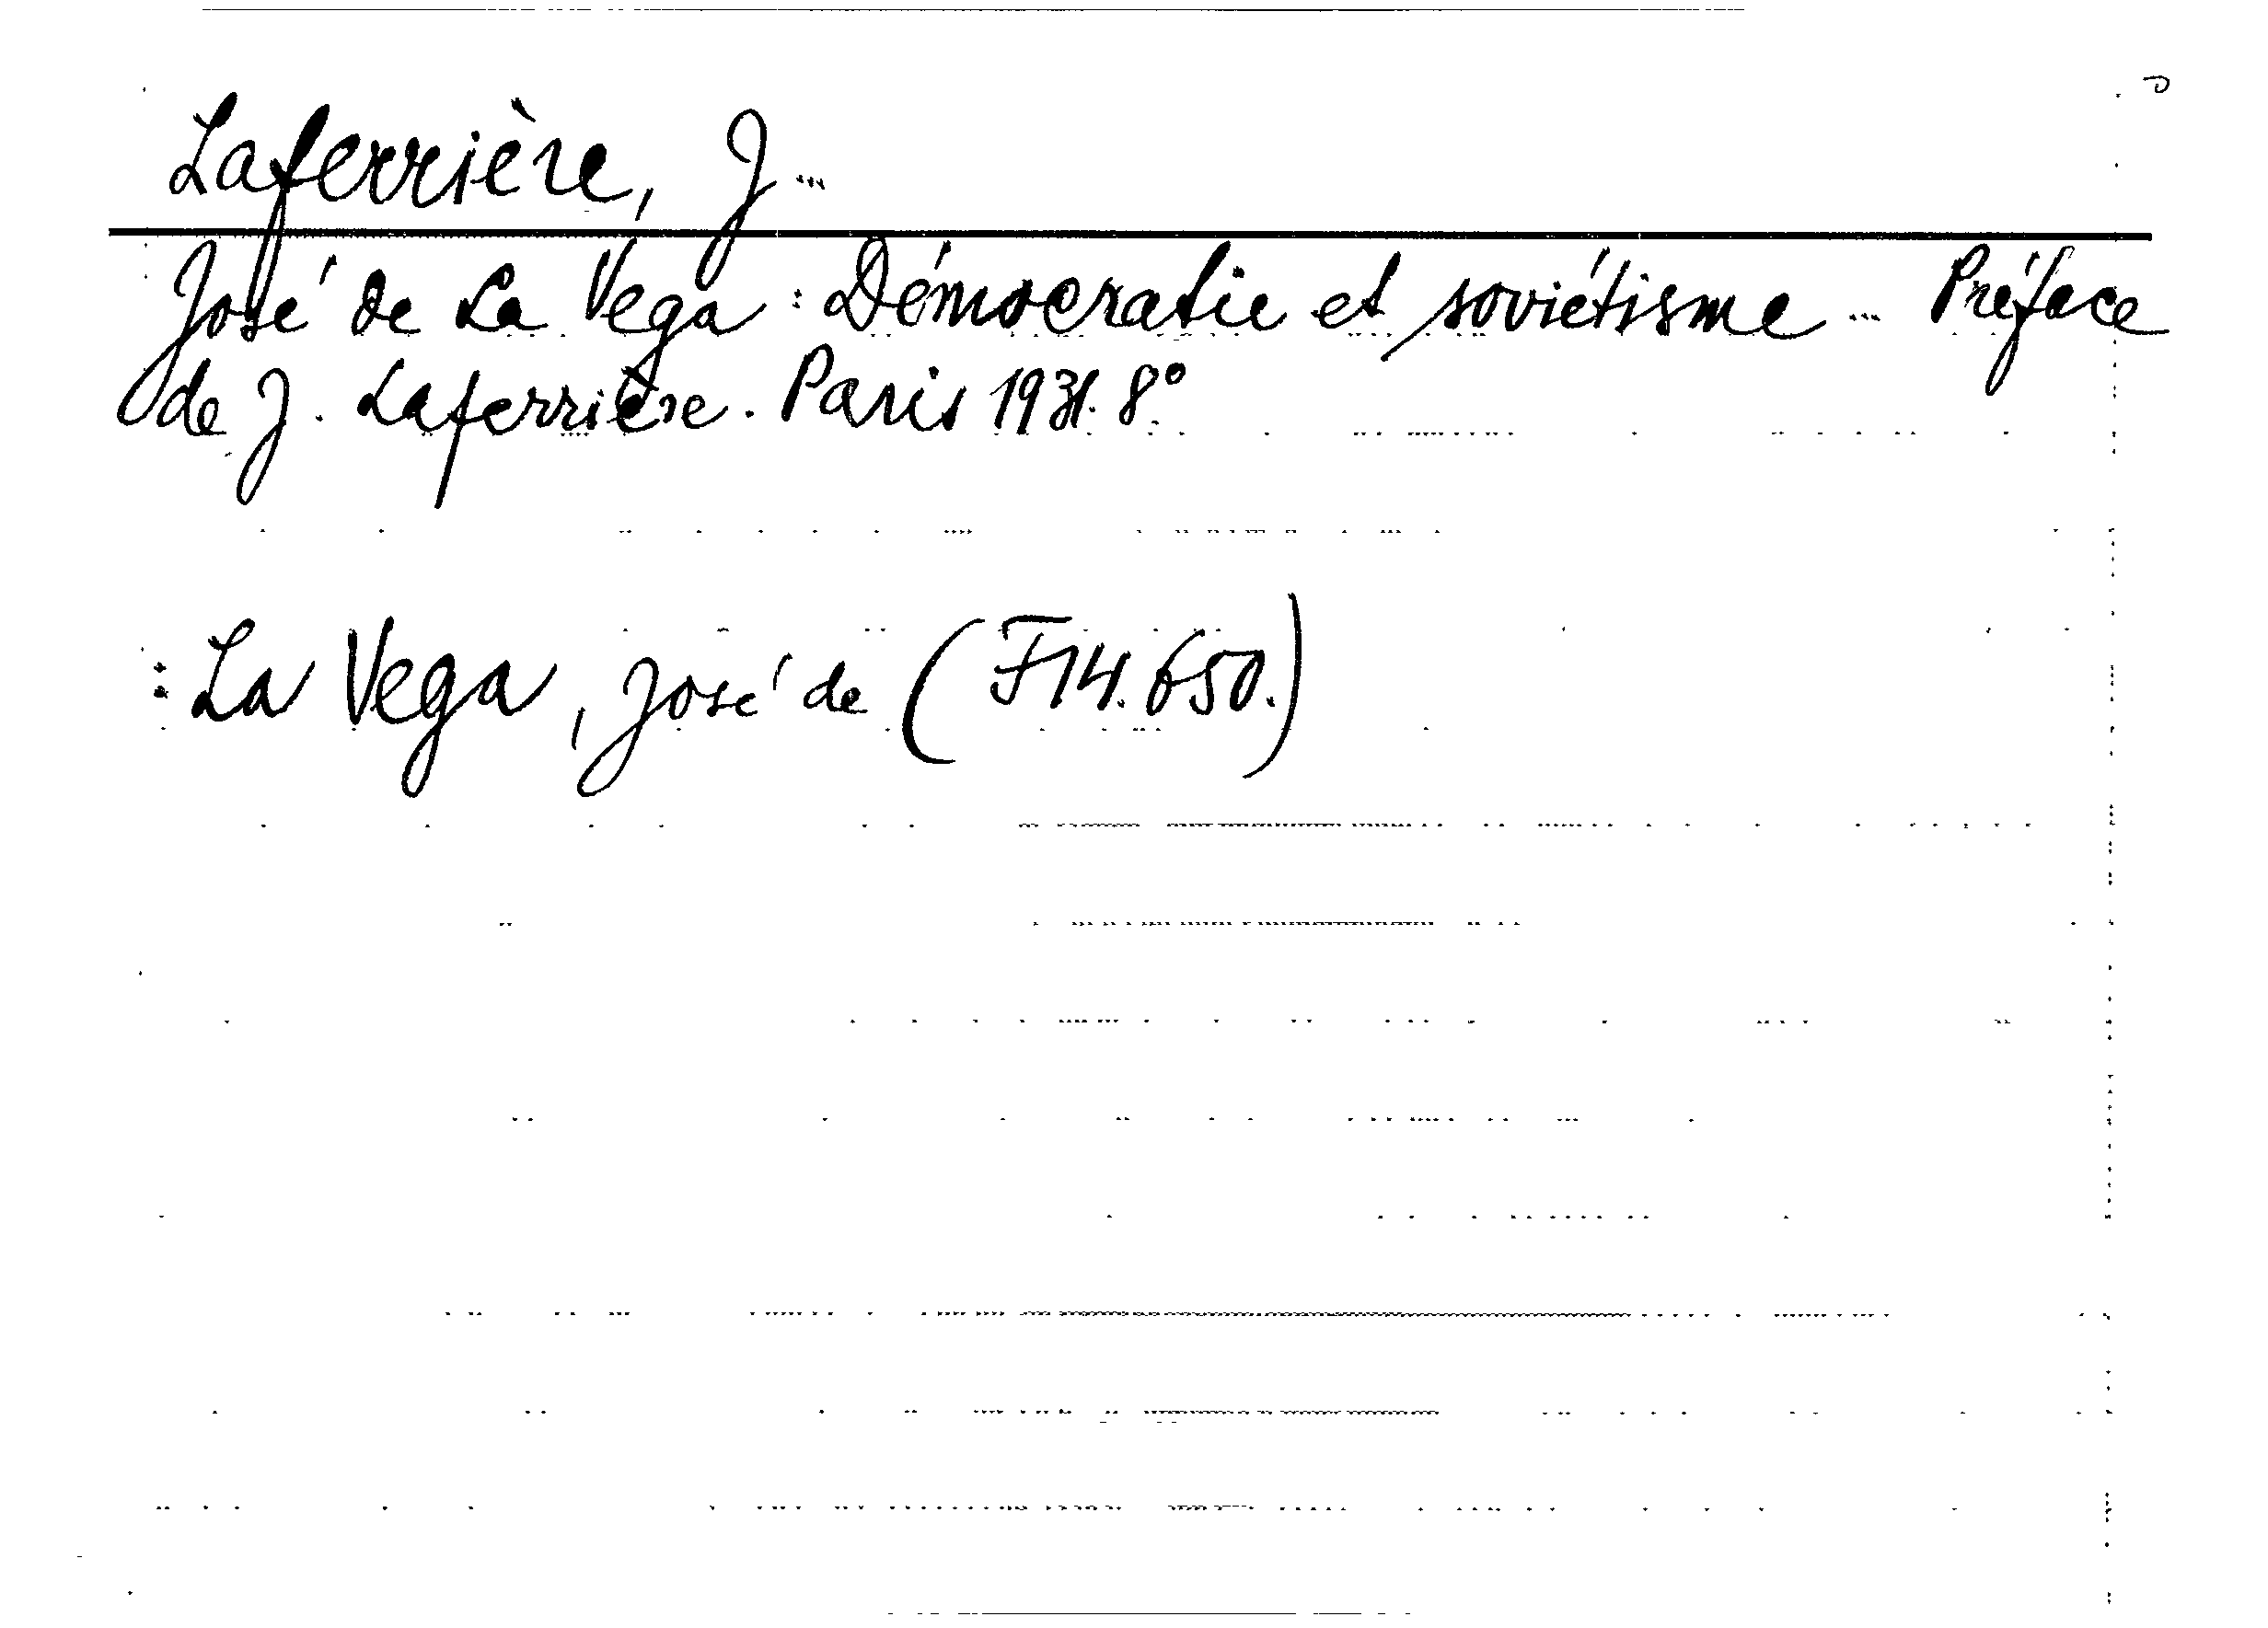 Laferrière, J...
José de La Vega : Démocratie et soviétisme ... Préface
de J. Laferrière. Paris 1931. 8°
: La Vega, José de (F14.650.)